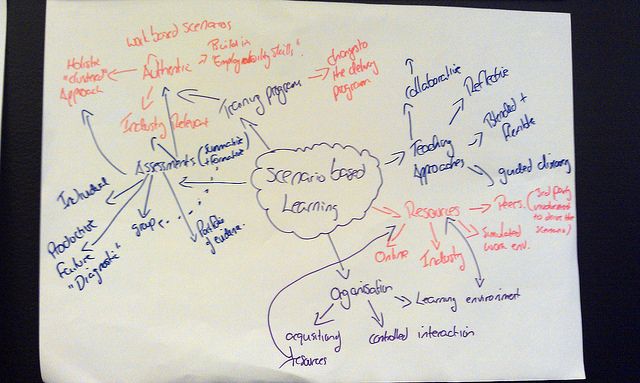 work based scenarios
Holistic
"clustered"
Approach
Authentic
Build in
"Employability skills".
changes to
the delivery
program
Training program
Industry Relevant
Assessments (Summative
+ Formative)
Individual
Productive
Failure
"Diagnostic"
group
Portfolio
of evidence.
Scenario based
Learning
Collaborative
Reflective
Teaching
Approaches
Blended +
flexible
guided discovery
Resources
Peers.
(3rd party
involvement
to drive the
scenario)
Simulated
work env.
Online
Industry
Organisation
Learning environment
acquisitions
resources
controlled interaction